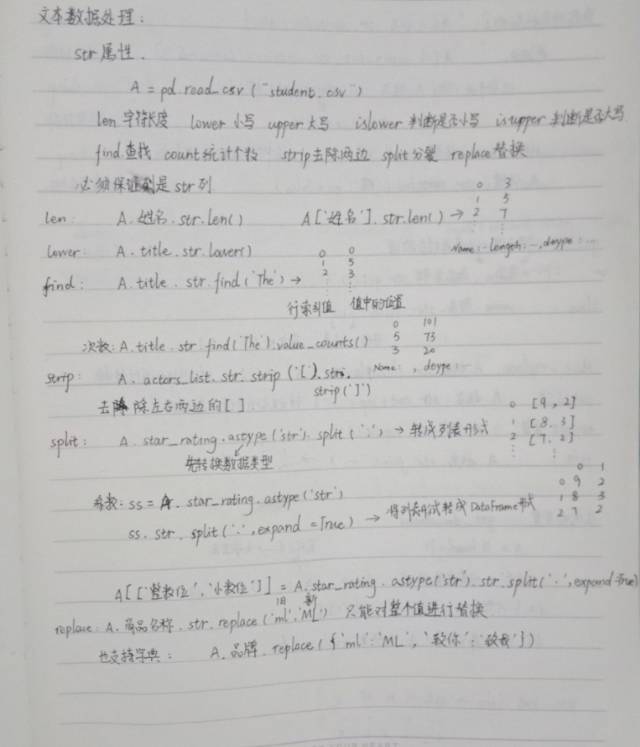 文本数据处理:
str 属性.
A = pd.read_csv("student.csv")
len 字符长度 lower 小写 upper 大写 islower 判断是否小写 isupper 判断是否大写
find 查找 count 统计个数 strip 去除两边 split 分裂 replace 替换
必须保证列是 str 列
len: A.姓名.str.len() A['姓名'].str.len() →
0 3
1 5
2 7
⋮
lower: A.title.str.lower() Name:-length:-,dtype:...
find: A.title.str.find('The') →
0 0
1 5
2 3
⋮ ⋮
行索引值 值中的位置
次数: A.title.str.find('The').value_counts()
0 101
5 73
3 20
Name: , dtype
strip: A.actors_list.str.strip('[').str.
strip(']')
去除左右两边的[ ]
split: A.star_rating.astype('str').split('.') → 转成列表形式
0 [9,2]
1 [8.3]
2 [7.2]
⋮ ⋮
先转换数据类型
参数: ss = A.star_rating.astype('str')
ss.str.split('.',expand=True) → 将列表形式转成DataFrame形式
0 1
0 9 2
1 8 3
2 7 2
A[['整数位','小数位']] = A.star_rating.astype('str').str.split('.',expand=True)
旧 新
replace: A.商品名称.str.replace('ml','ML') 只能对整个值进行替换
也支持字典: A.品牌.replace({'ml':'ML',